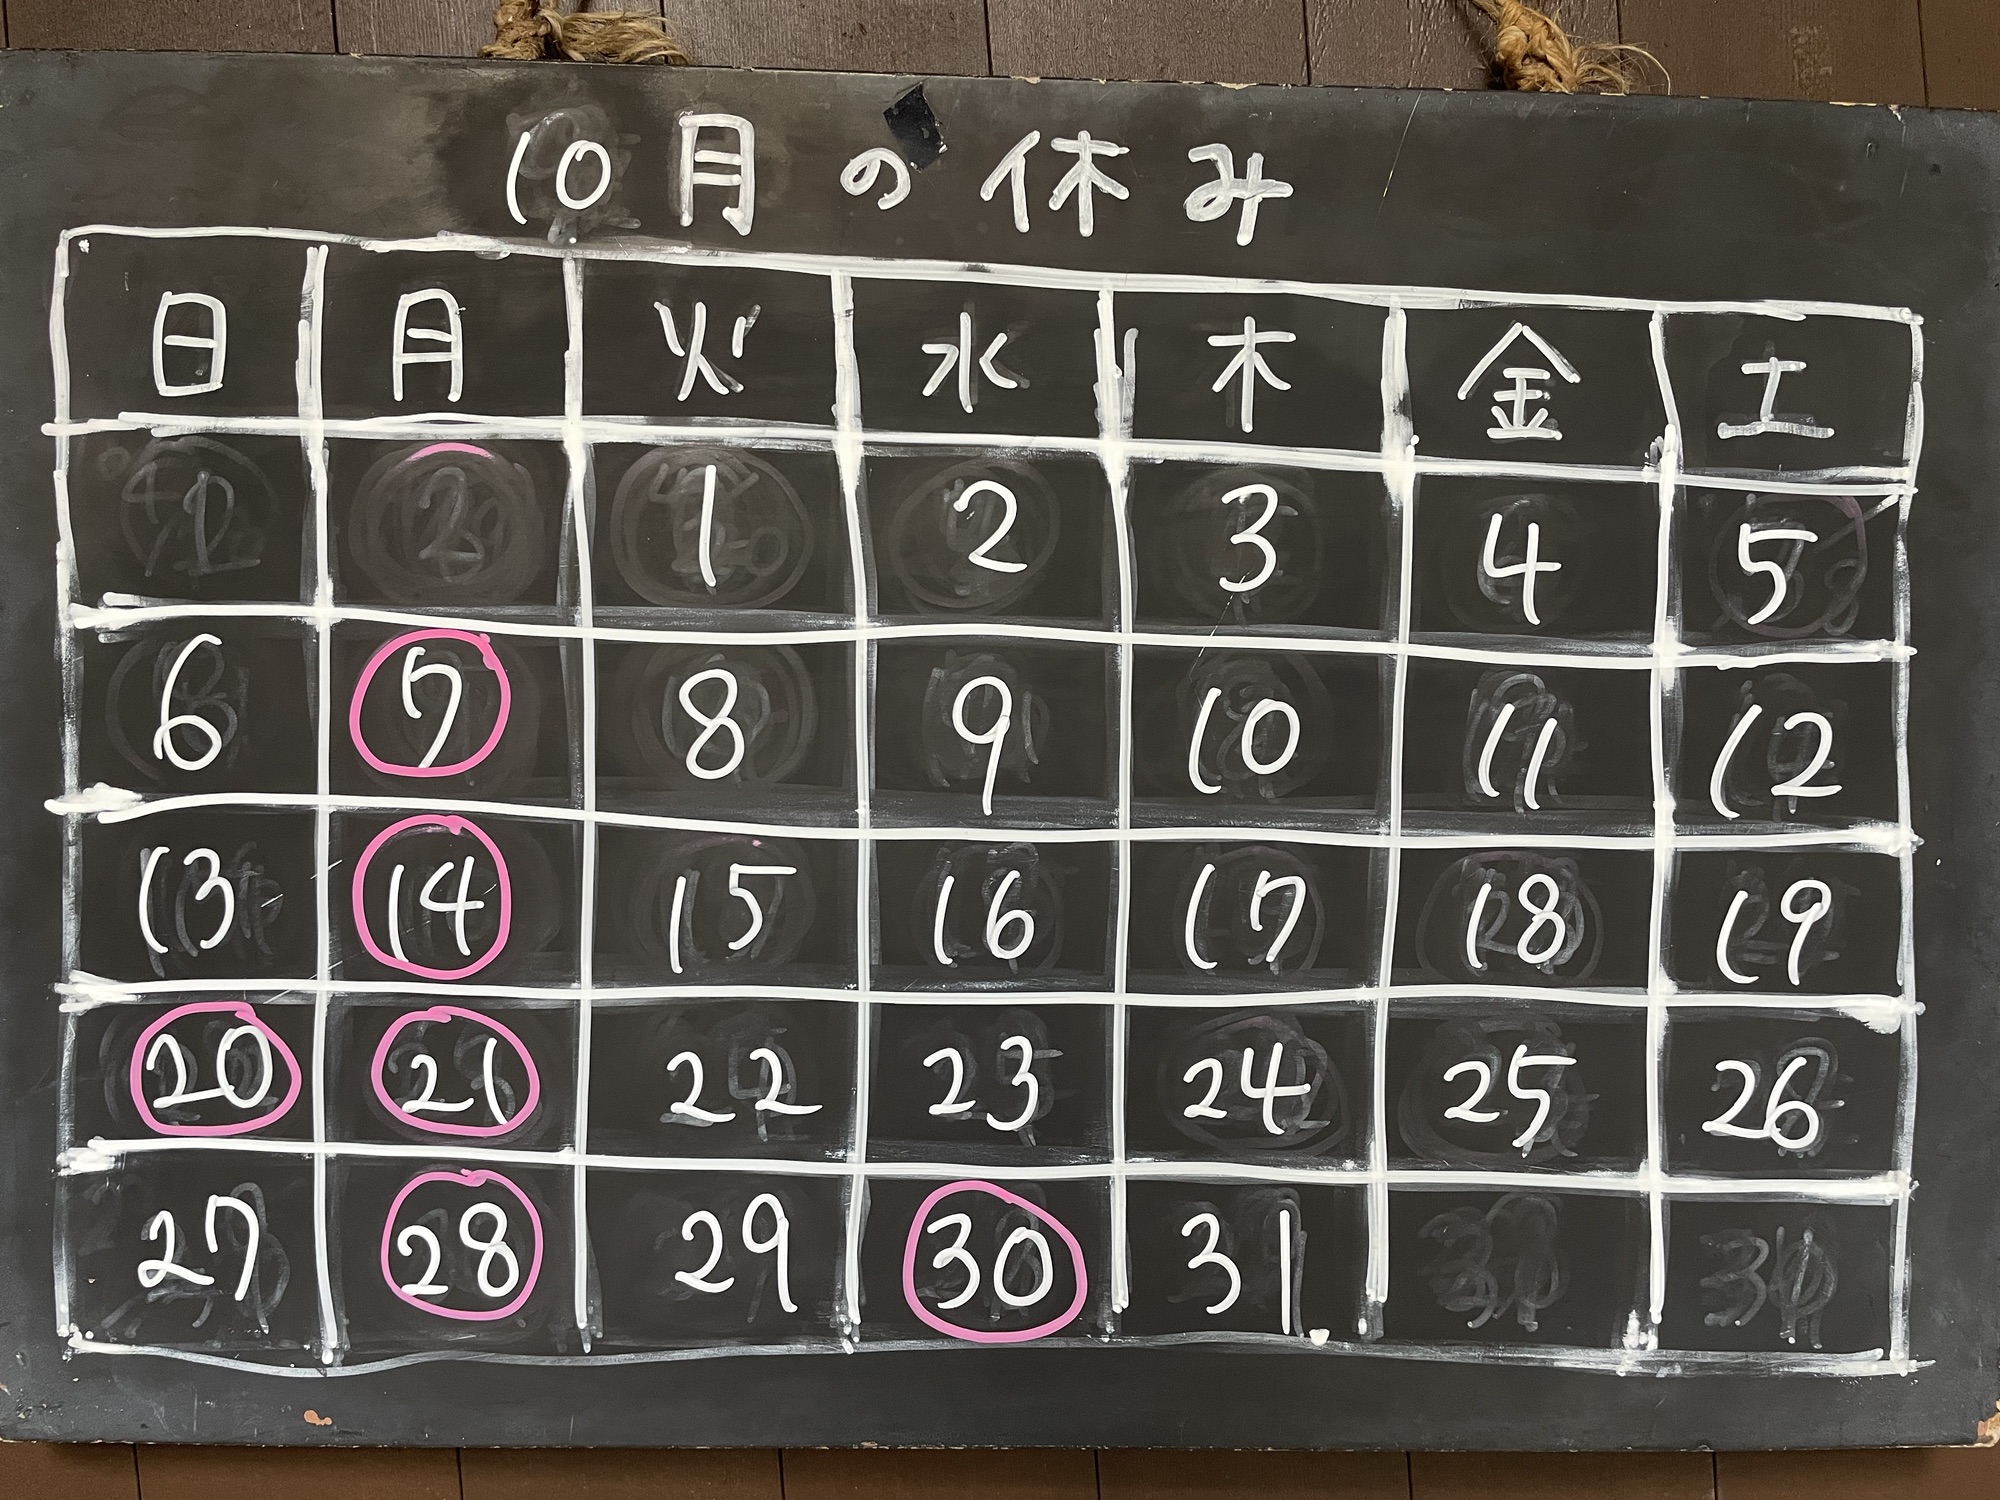 10月の休み
日 月 火 水 木 金 土
1 2 3 4 5
6 7 8 9 10 11 12
13 14 15 16 17 18 19
20 21 22 23 24 25 26
27 28 29 30 31